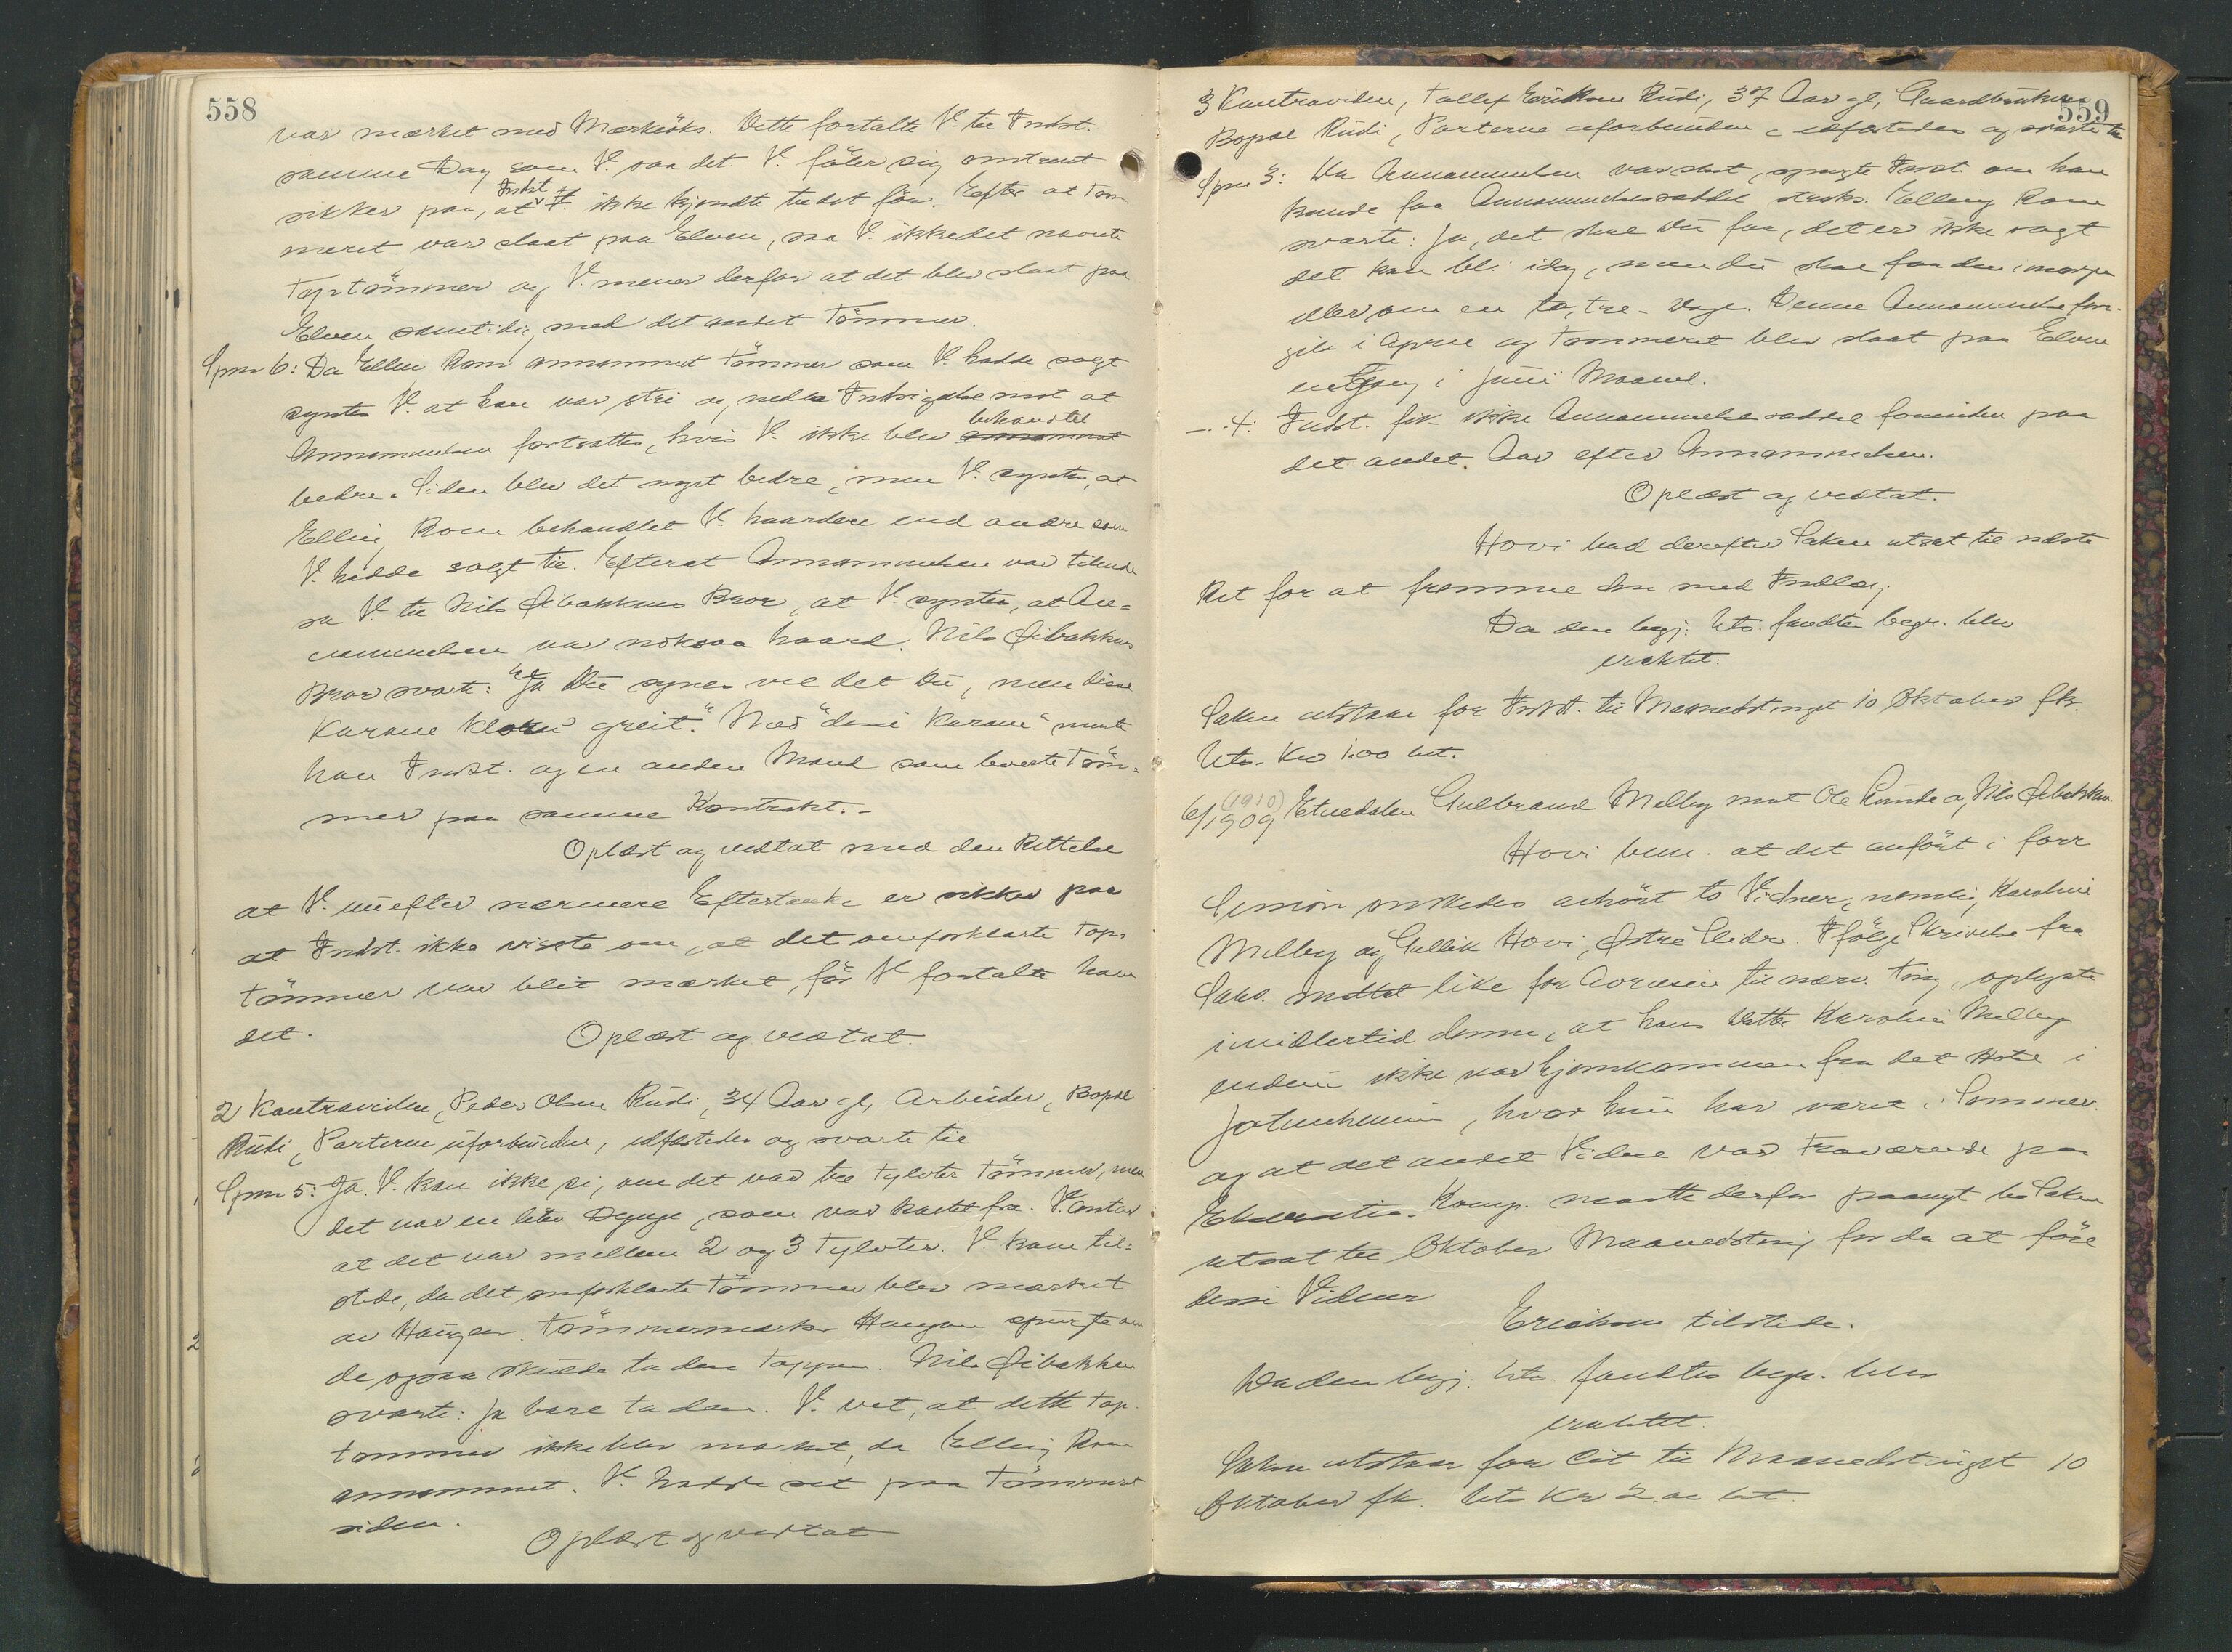 558
var mærket med Mærkeöks. Dette fortalte V. til Indst.
samme Dag som V. saa det. V. föler sig omtrent
sikker paa, at Indst. ikke kjendte til det för. Efter at Töm
meret var slaat paa Elven, saa V. ikke det nævnte
Toptömmer og V. mener derfor at det blev slaat paa
Elven samtidig med det andet Tömmer.
Spm 6: Da Elling Rom annammet Tömmer som V. hadde solgt
syntes V. at han var stri og nedla Indsigelse mot at
Annammelsen fortsattes, hvis V. ikke blev behandlet
bedre. Siden blev det noget bedre, men V. syntes, at
Elling Rom behandlet V. haardere end andre som
V. hadde solgt til. Efterat Annammelsen var tilende
sa V. til Nils Øibakkens Bror, at V. syntes, at An=
nammelsen var noksaa haard. Nils Øibakkens
Bror svarte: "Ja Du synes vel det Du, men disse
Karane greit." Med "disse Karane" mente
han Indst. og en anden Mand som leverte Töm=
mer paa samme Kontrakt.-
Oplæst og vedtat med den Rettelse
at V. nu efter nærmere Eftertanke er sikker paa
at Indst. ikke visste om, at det omforklarte Top-
tömmer var blit mærket, för V. fortalte ham
det. Oplæst og vedtat.
2 Kontraviden, Peder Olsen Rudi, 34 Aar gl, Arbeider, Bopæl
Rudi, Parterne uforbunden, edfæstedes og svarte til
Spm 5: Ja. V. kan ikke si, om det var tre Tylvter Tömmer, men
det var en liten Dynge, som var kastet fra. V. antar
at det var mellem 2 og 3 Tylvter. V. kom til=
stede, da det omforklarte Tömmer blev mærket
av Haugen. Tömmermærker Haugen spurte om
de ogsaa skulde ta den Toppen. Nils Øibakken
svarte: Ja bare ta den. V. vet, at dette Top-
tömmer ikke blev mærket, da Elling Rom
annammet. V. hadde set paa Tömmeret
siden.
Oplæst og vedtat
559
3 Kontraviden, Tollef Eriksen Rudi, 37 Aar gl, Gaardbruker
Bopæl Rudi, Parterne uforbunden, edfæstedes og svarte til
Spm 3: Da Annammelsen var slut, spurgte Indst. om han
kunde faa Annammelsesseddel straks. Elling Rom
svarte: Ja, det skal Du faa, det er ikke sagt
det kan bli idag, men du skal faa den imorgen
eller om en to, tre - Dage. Denne Annammelse fore-
gik i April og Tömmeret blev slaat paa Elven
engang i Juni Maaned.
-.-4: Indst. fik ikke Annammelsesseddel forinden paa
det andet Aar efter Annammelsen.
Oplæst og vedtat.
Hovi bad derefter Saken utsat til næste
Ret for at fremme den med Indlæg.
Da den begj. Uts. fandtes begr. blev
eraktet:
Saken utstaar for Indst. til Maanedstinget 10 Oktober fk.
Uts. Kr 1.00 bet.
6/1909 (1910) Etnedalen Gulbrand Melby mot Ole Lunde og Nils Øibakken.
Hovi bem. at det anfört i forr
Session önskedes avhört to Vidner, nemlig Karoline
Melby og Gullik Hovi, Østre Slidre. Ifölge Skrivelse fra
Saks. like för Avreisen til nærv. Ting, oplyste
imidlertid denne, at hans Datter Karoline Melby
endnu ikke var hjemkommen fra det Hotel i
Jotunheimen, hvor hun har været i Sommer
og at det andet Vidne var fraværende paa
Komp. maatte derfor paanyt be Saken
utsat til Oktober Maanedsting for da at före
disse Vidner
Ericksen tilstede.
Da den begj. Uts. fandtes begr. blev
eraktet.
Saken utstaar for Cit. til Maanedstinget 10
Oktober fk. Uts Kr 2.00 bet.